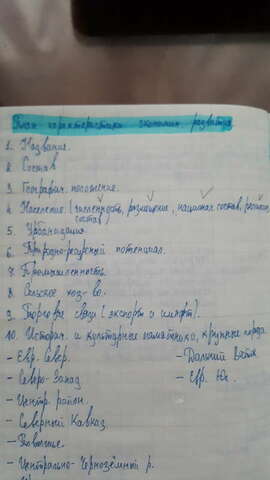 План характеристики экономич. развития
1. Название.
2. Состав
3. Географич. положение.
4. Население (численность, размещение, национал. состав, религиозн.
состав)
5. Урбанизация.
6. Природно-ресурсный потенциал.
7. Промышленность.
8. Сельское хоз-во.
9. Торговые связи (экспорт и импорт).
10. Историч. и культурные памятники, крупные города.
- Евр. Север. - Дальний Восток
- Северо-Запад - Евр. Юг.
- Центр. район.
- Северный Кавказ.
- Поволжье.
- Центрально-Чернозёмный р.